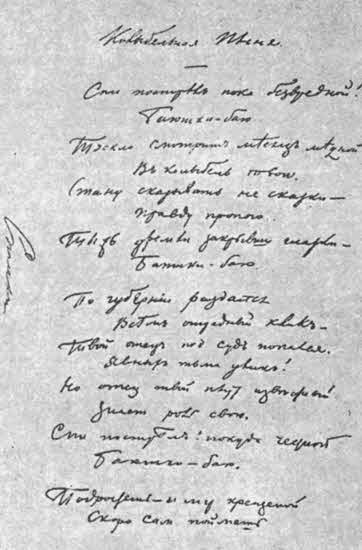 Колыбельная пѣсня.
Спи пострѣлъ пока безвредной!
Баюшки-баю.
Тускло смотритъ мѣсяцъ мѣдной
Въ колыбель твою.
Стану сказывать не сказки —
Правду пропою.
Ты жъ дремли закрывши глазки —
Баюшки-баю.
По губерніи раздался
Всѣмъ отрадный кликъ —
Твой отецъ подъ судъ попался.
Явныхъ тьма уликъ!
Но отецъ твой плутъ извѣстный
Знаетъ роль свою.
Спи пострѣлъ покуда честной
Баюшки-баю.
Подростешь — и міръ крещеной
Скоро самъ поймешь